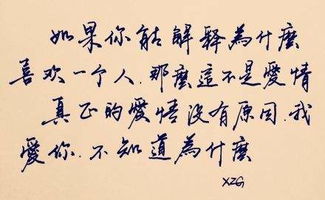 如果你能解释為什麼
喜欢一个人.那麼這不是愛情
真正的愛情没有原因.我
愛你.不知道為什麼
XZG